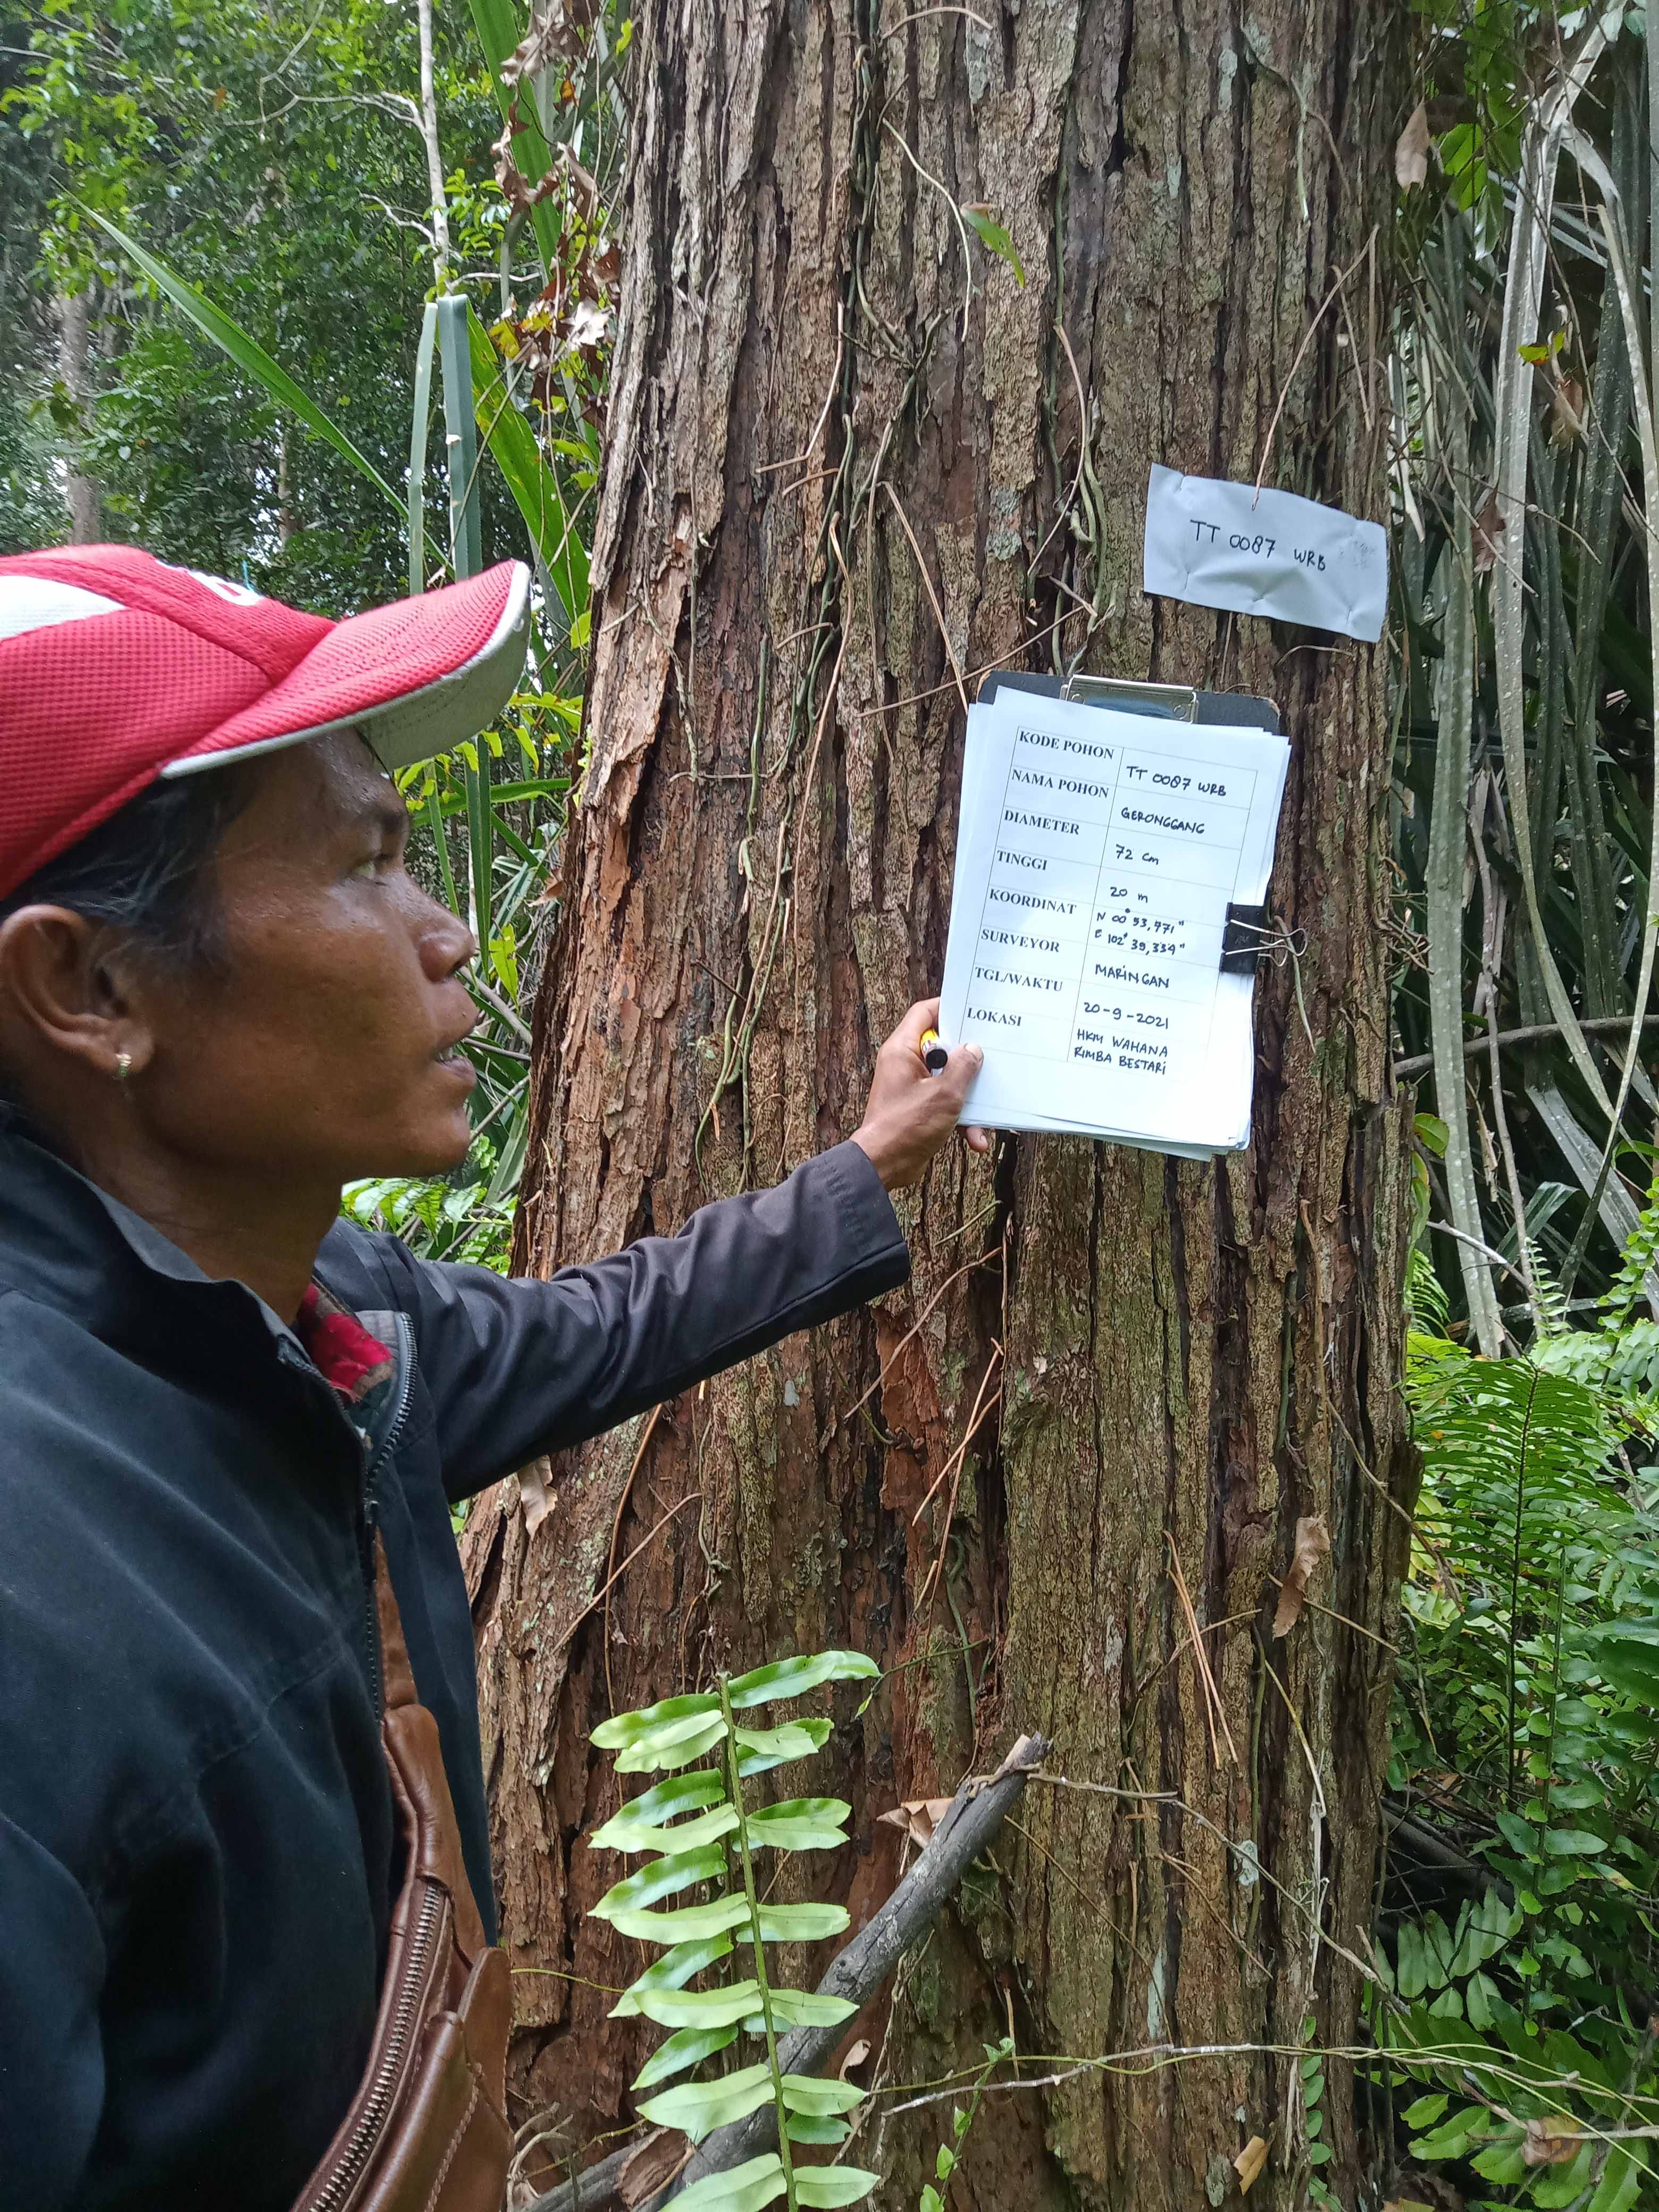 TT 0087 WRB
KODE POHON TT 0087 WRB
NAMA POHON GERONGGANG
DIAMETER 72 cm
TINGGI 20 m
KOORDINAT N 00° 53,771"
E 102° 39,334"
SURVEYOR MARINGAN
TGL/WAKTU 20-9-2021
LOKASI HKM WAHANA
RIMBA BESTARI